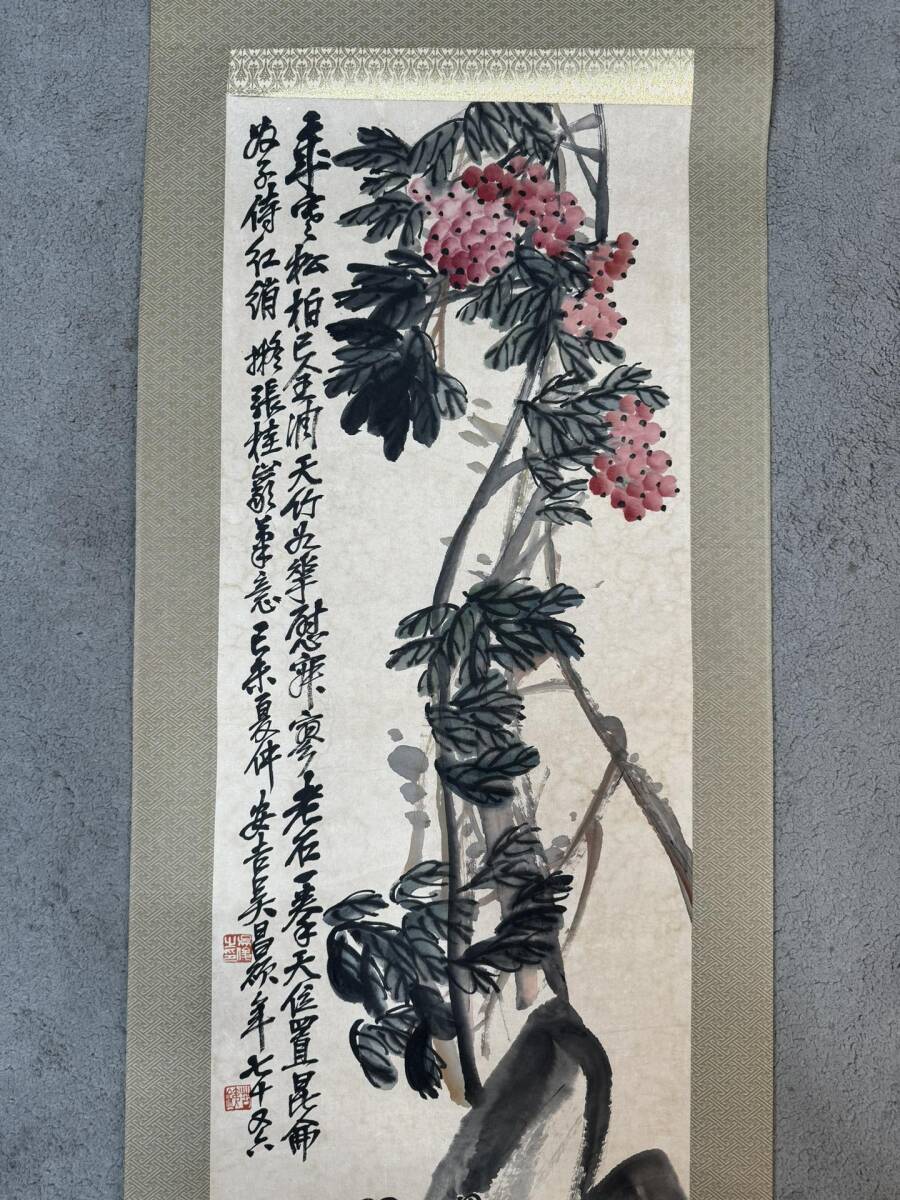 歲寒松柏已全凋天竹如華慰寂寥老石一拳天位置昆侖
奴子侍紅綃擬張桂巖筆意己未夏仲安吉吳昌碩年七十又六